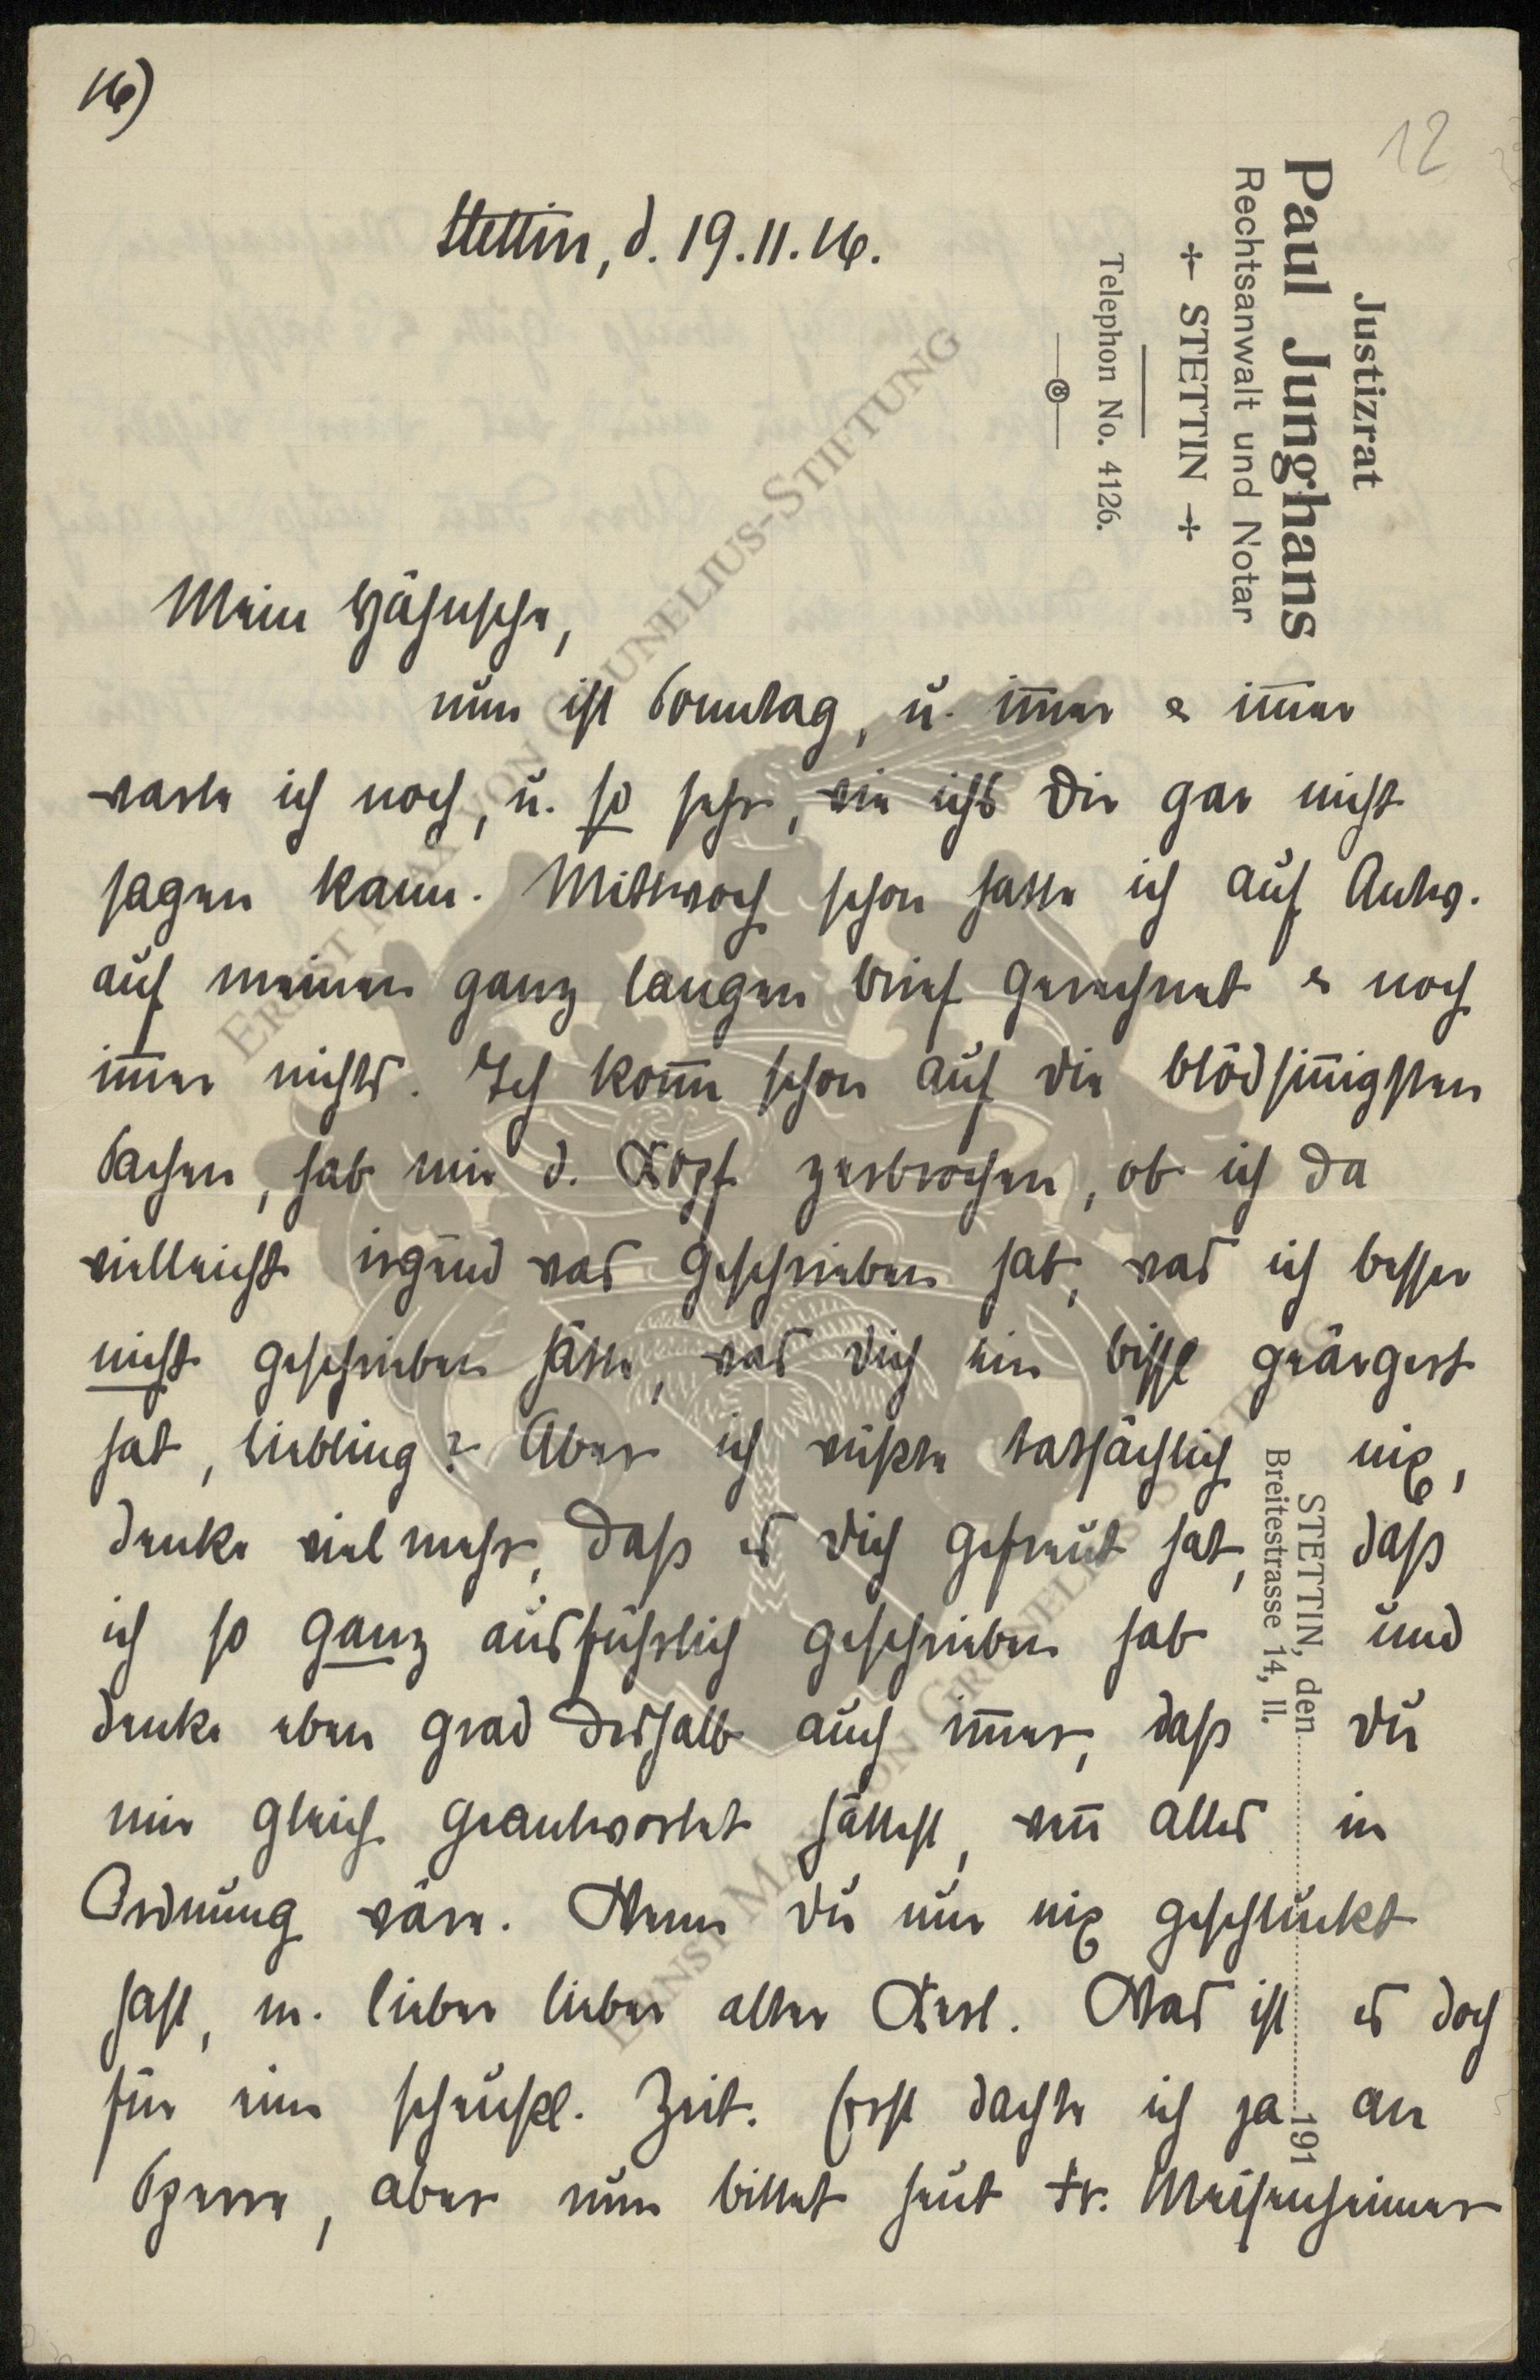 16)
12
Justizrat
Paul Junghans
Rechtsanwalt und Notar
STETTIN
Telephon No. 4126.
Stettin, d. 19.11.16.
Mein Hähnsche,
nun ist Sonntag, u. im̄er & im̄er
warte ich noch, u. so sehr, wie ichs Dir gar nicht
sagen kann. Mittwoch schon hatte ich auf Antw.
auf meinen ganz langen Brief gerechnet & noch
im̄er nichts. Ich kom̄e schon auf die blödsin̄igsten
Sachen, hab mir d. Kopf zerbrochen, ob ich da
vielleicht irgend was geschrieben hab, was ich besser
nicht geschrieben hätte, was Dich ein bissl geärgert
hat, Liebling? Aber ich wüßte tatsächlich nix,
denke viel mehr, daß es Dich gefreut hat, daß
ich so ganz ausführlich geschrieben hab und
denke eben grad deshalb auch im̄er, daß Du
mir gleich geantwortet hättest, wen̄ alles in
Ordnung wäre. Wenn Du nur nix geschluckt
hast, m. lieber lieber alter Kerl. Was ist es doch
für eine scheußl. Zeit. Erst dachte ich ja an
Sperre, aber nun bittet heut Fr. Meisenheimer
STETTIN, den 191
Breitestrasse 14, II.
ERNST MAX VON GRUNELIUS-STIFTUNG
ERNST MAX VON GRUNELIUS-STIFTUNG